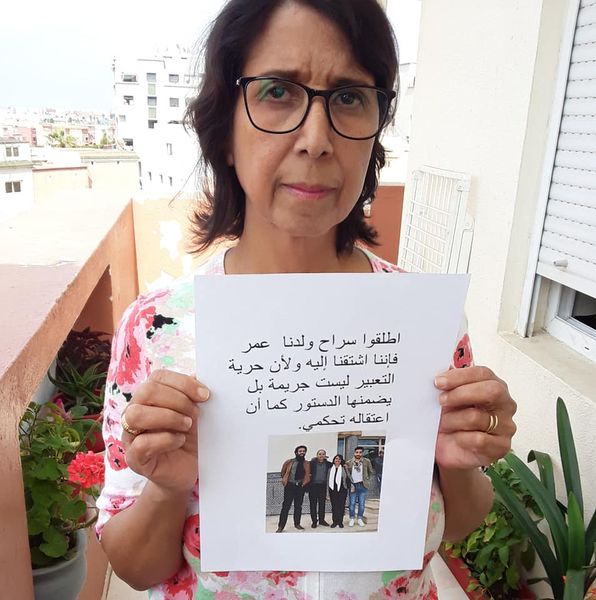 اطلقوا سراح ولدنا عمر
فإننا اشتقنا إليه ولأن حرية
التعبير ليست جريمة بل
يضمنها الدستور كما أن
اعتقاله تحكمي.